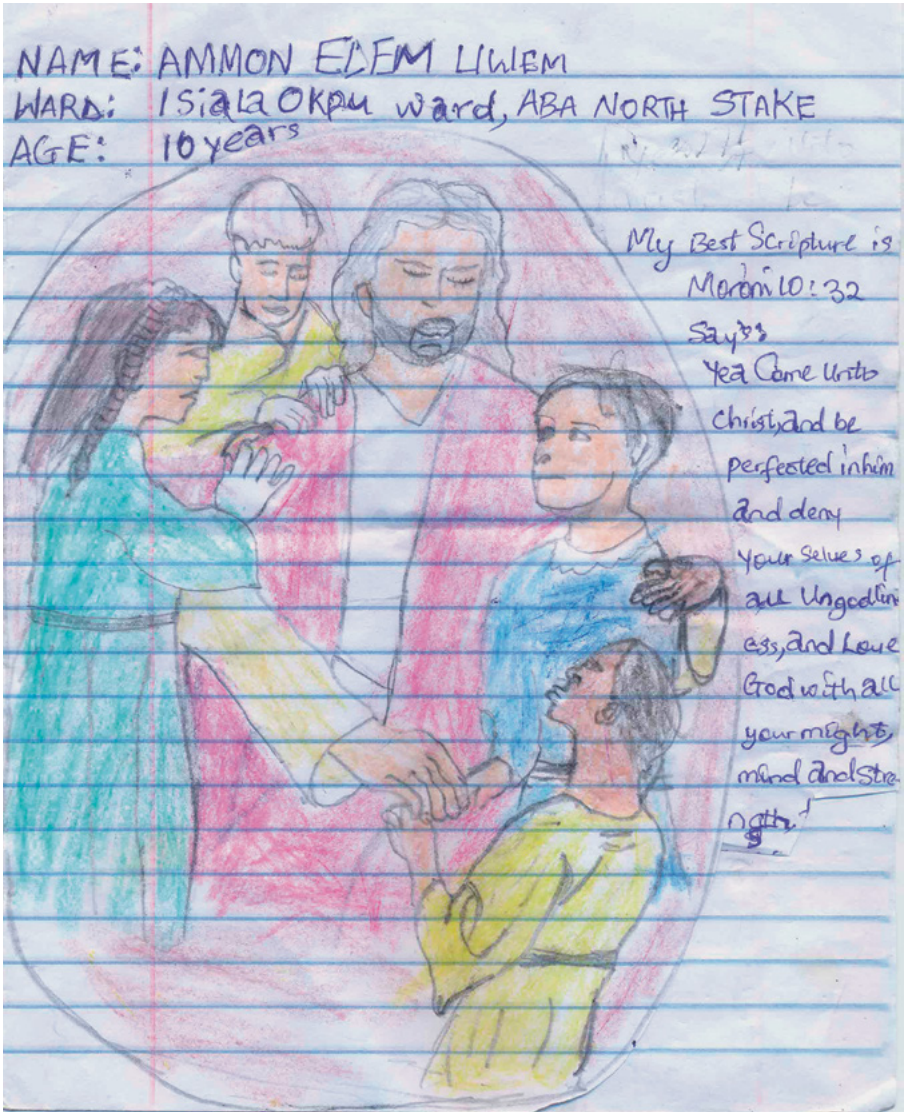 NAME: AMMON EDEM UWEM
WARD: Isiala Okpu ward, ABA NORTH STAKE
AGE: 10 years
My Best Scripture is
Moroni 10:32
Say's
Yea Come Unto
Christ, and be
perfected in him
and deny
your selves of
all Ungodlin
ess, and Love
God with all
your might,
mind and Stre
ngth